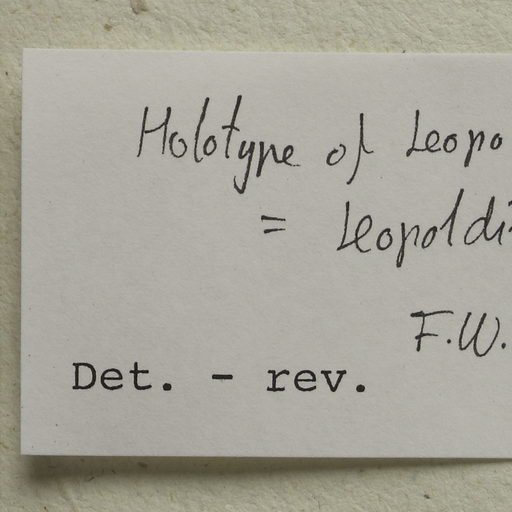 Holotype of Leopo
= Leopoldi
F.W.
Det. - rev.